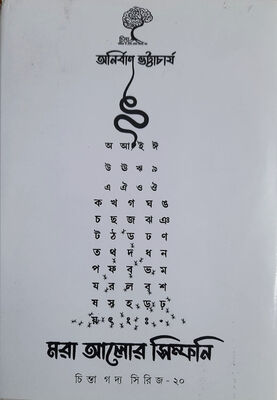 চিন্তা
অনির্বাণ ভট্টাচার্য
অ আ ই ঈ
উ ঊ ঋ ৯
এ ঐ ও ঔ
ক খ গ ঘ ঙ
চ ছ জ ঝ ঞ
ট ঠ ড ঢ ণ
ত থ দ ধ ন
প ফ ব ভ ম
য র ল ব শ
ষ স হ ড় ঢ়
য় ৎ ং ঃ ঁ
মরা আলোর সিম্ফনি
চিন্তা গদ্য সিরিজ-২০